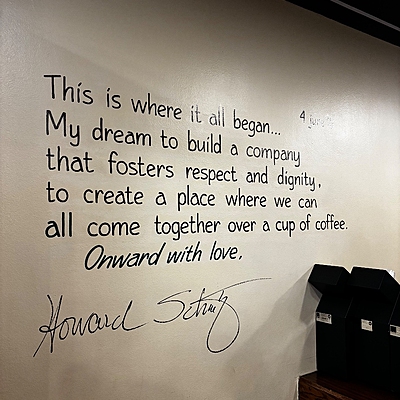 This is where it all began...
My dream to build a company
that fosters respect and dignity,
to create a place where we can
all come together over a cup of coffee.
Onward with love,
Howard Schultz